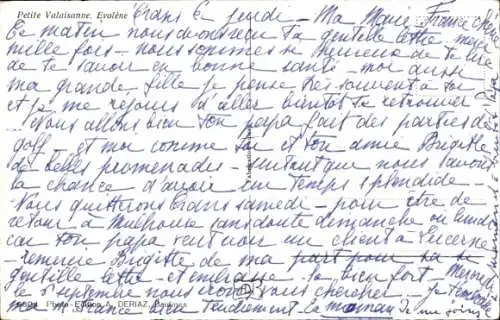 Petite Valaisanne. Evolène
Crans ce jeudi – Ma Marie France chérie
Ce matin nous avons reçu ta gentille lettre – merci
mille fois – nous sommes si heureux de te lire
de te savoir en bonne santé – moi aussi
ma grande fille je pense très souvent à toi
et je me réjouis d'aller bientôt te retrouver
Nous allons bien ton papa fait des parties de
golf – et moi comme toi et ton amie Brigitte
de belles promenades – surtout que nous avons
la chance d'avoir un temps splendide –
Nous quitterons Crans samedi – pour être de
retour à Mulhouse sans doute dimanche ou lundi
car ton papa veut voir un client à Lucerne –
remercie Brigitte de ma part pour sa si
gentille lettre – et embrasse-la bien fort – Mercredi
le 5 septembre nous irons vous chercher – je t'embrasse
ma France bien tendrement. la maman
Photo-Edition A. DERIAZ, Baulmes